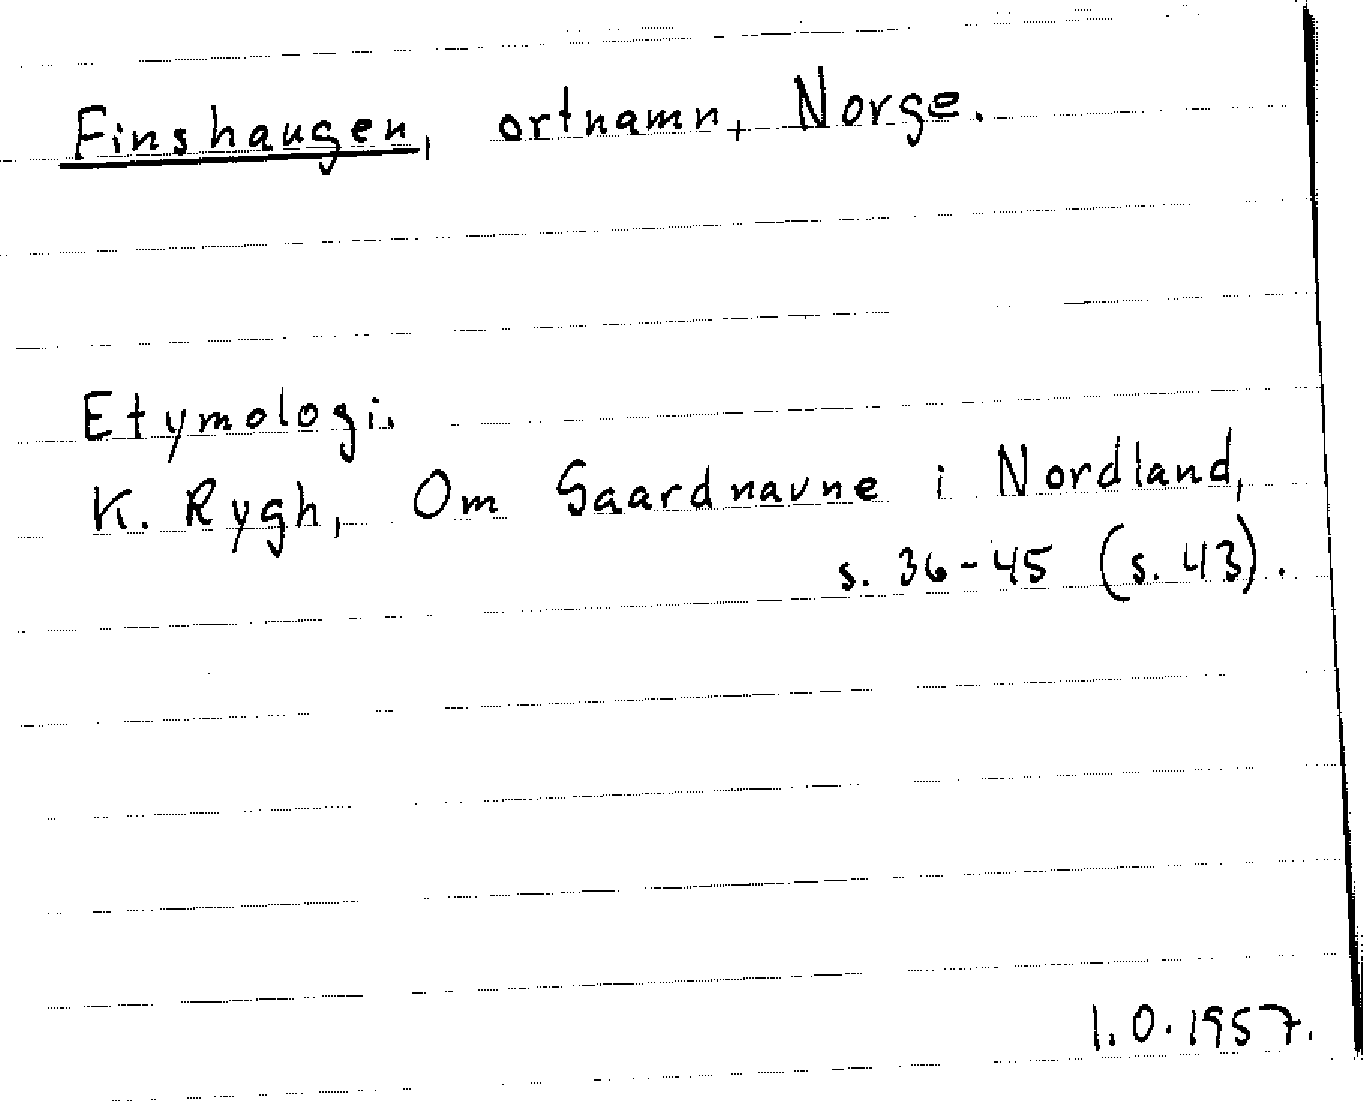 Finshaugen, ortnamn, Norge.
Etymologi.
K. Rygh, Om Gaardnavne i Nordland,
s. 36-45 (s. 43).
I.O. 1957.